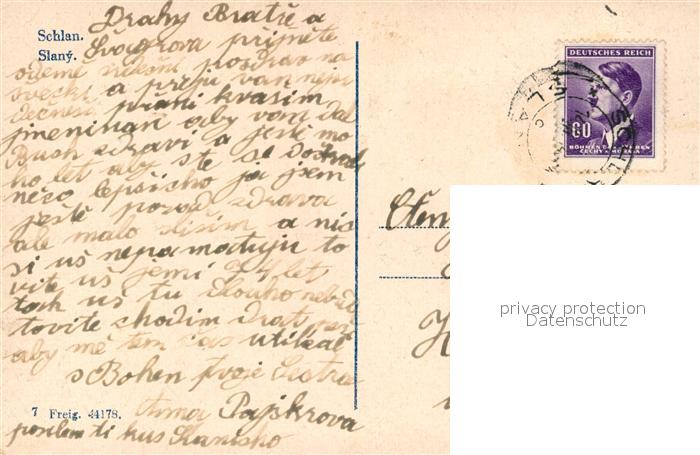 Schlan.
Slaný.
Drahy Bratře a
Švagrova přiměte
odemě pozdrav na
a přeji vam
přani kvašim
jmeninam aby vam dal
Buch zdravi a ještě mo
ho let aby ste se dočkali
něco lepšiho ja jsem
ještě pořad zdrava
ale malo slišim a nic
si uš nepamatuju to
vite uš jemi 74 let
tak uš tu dlouho nebudu
tovite chodim
aby mě ten čas utikal
s Bohen tvoje Sestra
Anna Pajskrova
posilam ti kus Slanisko
7 Freig. 44178.
DEUTSCHES REICH
60
BÖHMEN U. MÄHREN
ČECHY A MORAVA
privacy protection
Datenschutz